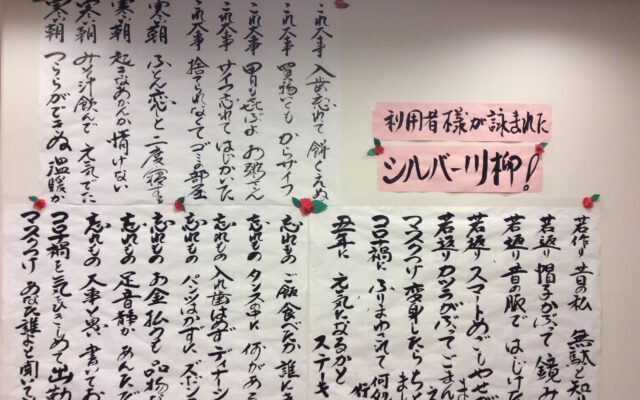 利用者様が詠まれた
シルバー川柳!
これ大事 入歯忘れて 餅くえぬ
これ大事 買物なども からサイフ
これ大事 胃も喜ぶよ お粥さん
これ大事 サイフ忘れて はじかいた
これ大事 捨てられなくて ゴミの部屋
寒い朝 ふとん恋しと 二度寝する
寒い朝 起きなあかんが 情けない
寒い朝 みそ汁飲んで 元気でた
寒い朝 つららができぬ 温暖か
若作り 昔の私 無駄と知り
若返り 帽子かぶって 鏡み
若返り 昔の服で はじけた
若返り スマートめざしやせが
若返り カツラかぶって ごまん
マスクつけ 変身したら ち
コロナ禍に ふりまわされて 何処
行
丑年に 元気になるかと
ステーキ
忘れもの ご飯食べたか 誰にき
忘れもの タンスの中に 何がある
忘れもの 入れ歯はずす ディナーシ
忘れもの パンツはかずに ズボン
忘れもの お金払っても 品物
忘れもの 足音静か あんただ
忘れもの 大事と思い 書いてお
コロナ禍と気をひきしめて 出勤
マスクつけ あなた誰よと 聞いて